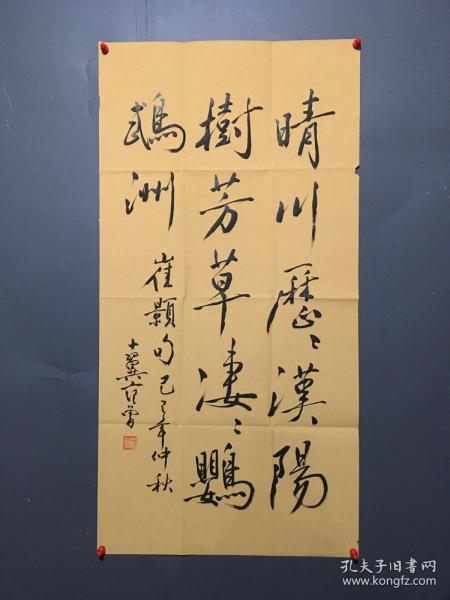 晴川歷〻漢陽
樹芳草凄〻鸚
鵡洲
崔顥句己巳年仲秋
十翼范曾
孔夫子旧书网
www.kongfz.com